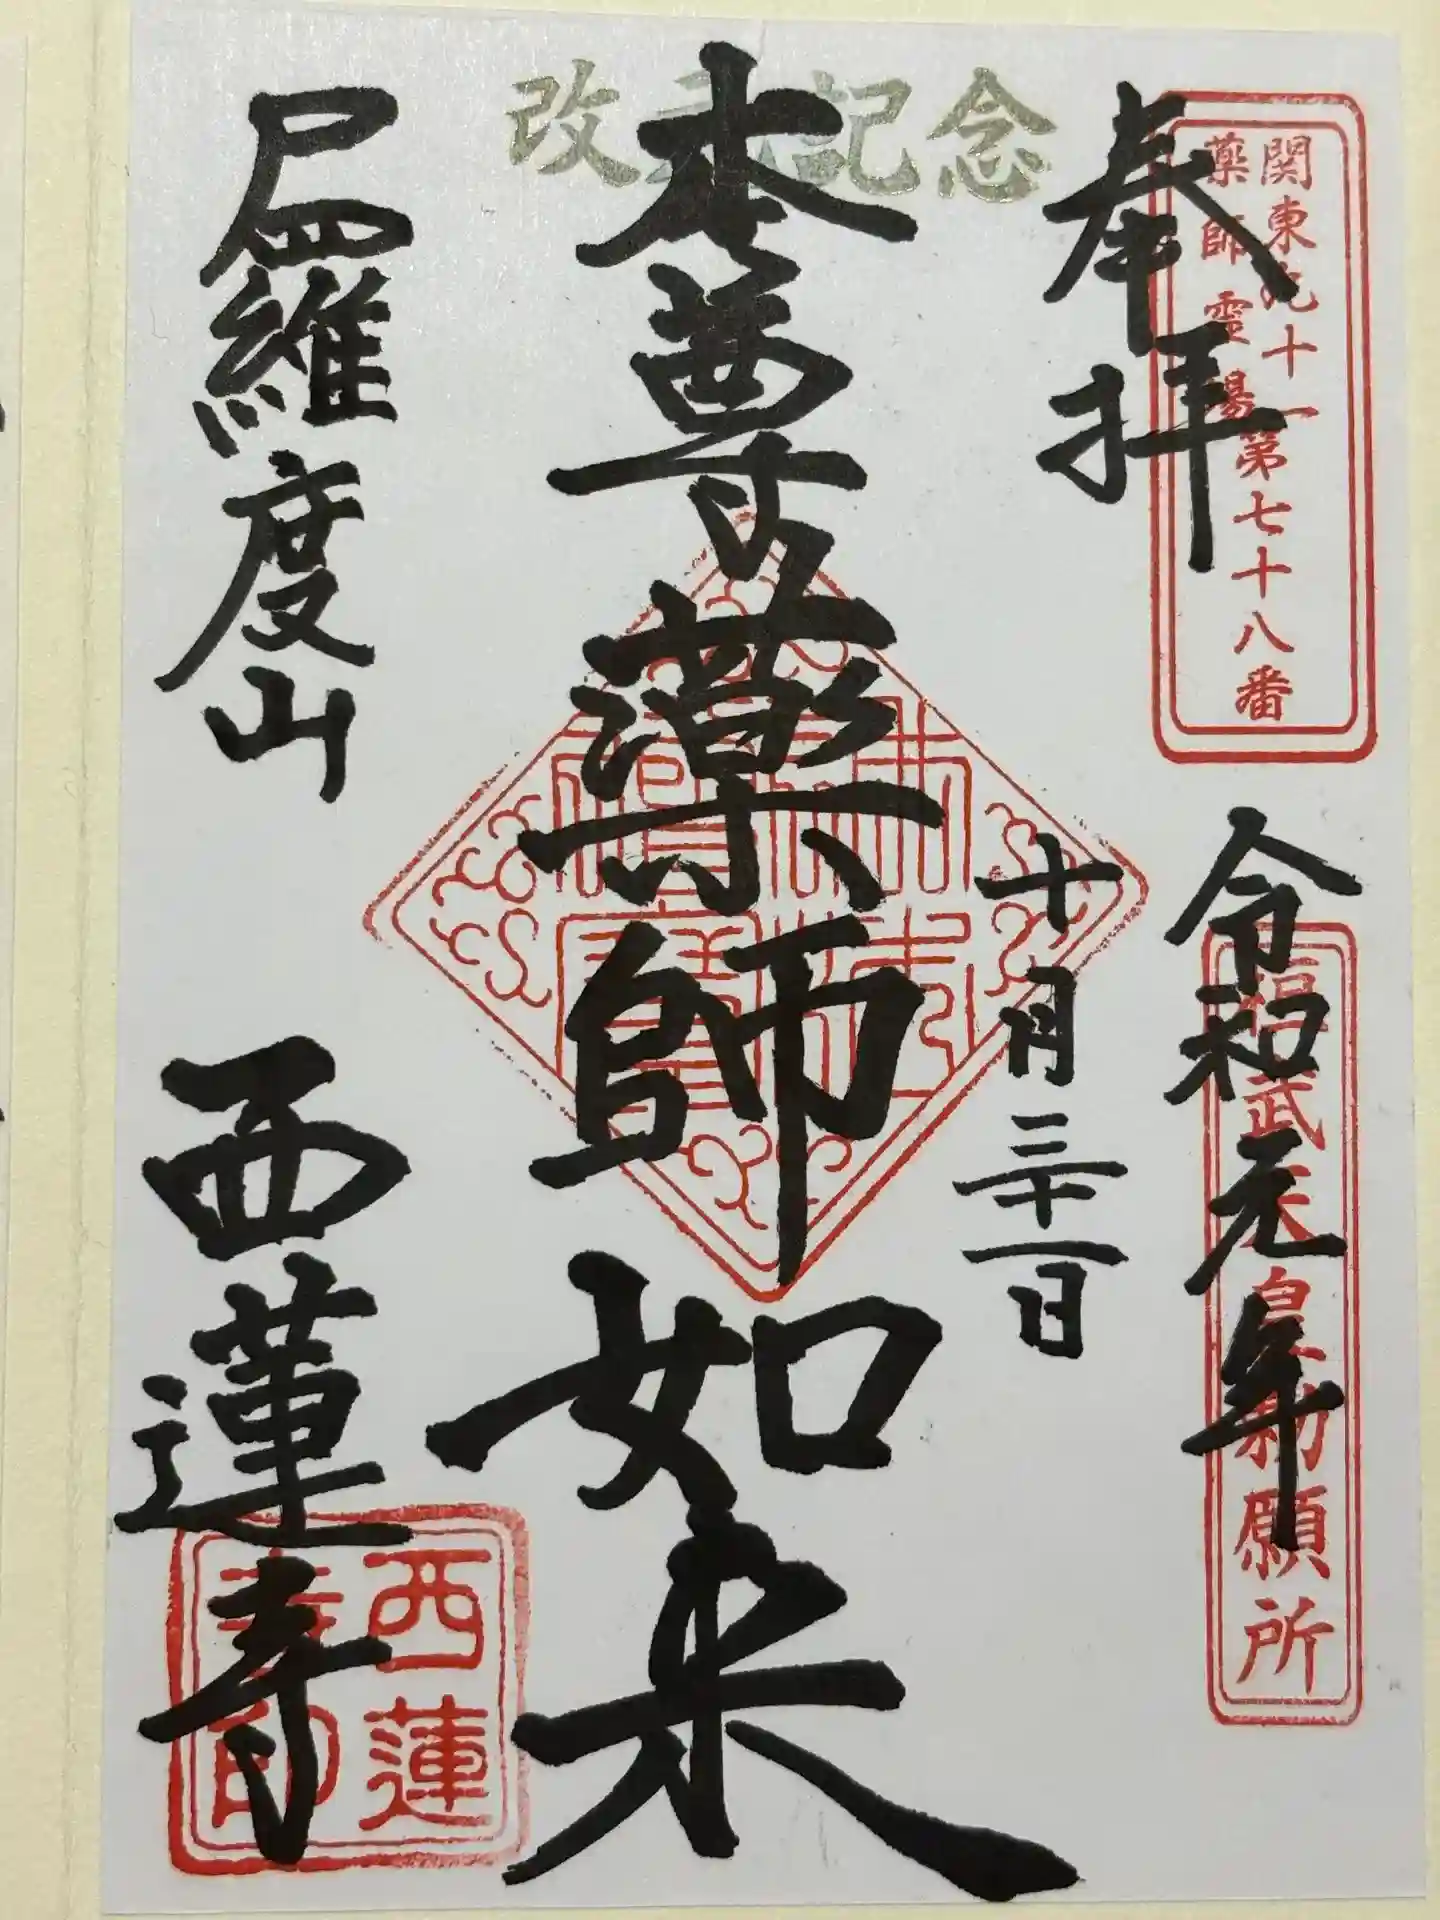 改元記念
奉拝
関東九十一
薬師霊場第七十八番
令和元年
十月三十一日
聖武天皇勅願所
本尊薬師如来
尸羅度山
西蓮寺
西蓮
寺印